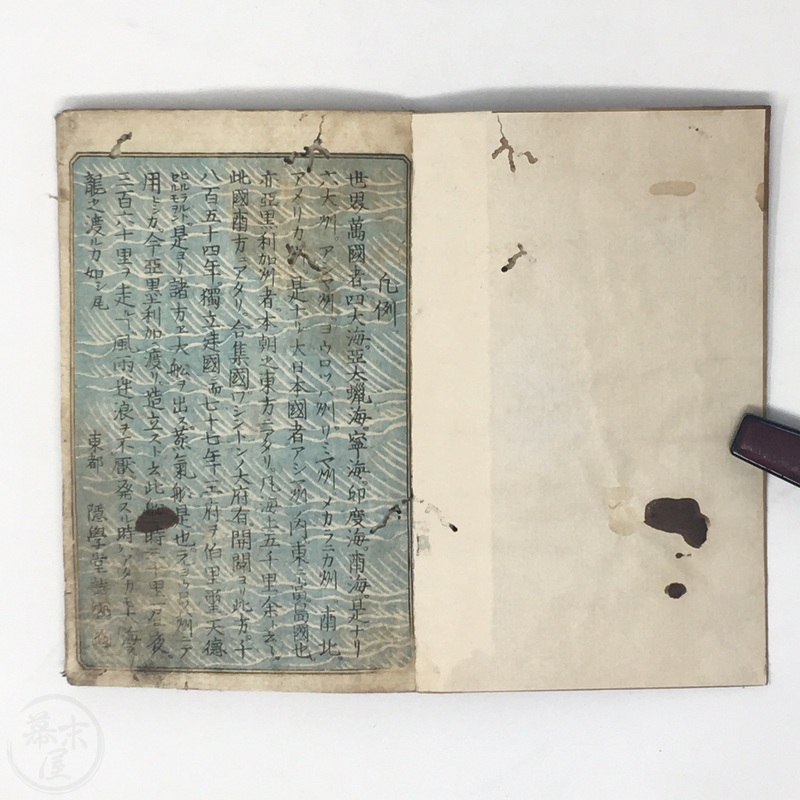 凡例
世界萬國者四大海亞太蠟海。寧海。印度海。南海。是ナリ
六大州 アシヤ州 ヨウロツハ州 リミヤ州 メカラニカ州 南北
アメリカ 是ナリ 大日本國者アシヤ州ノ内東ニ當ル國也。
亦亞墨利加州者本朝之東方ニアタリ 海上五千里余ト云
此國南方ニアタリ 合集國ワシントンノ大府有開闢ヨリ此方千
八百五十四年獨立建國而七十七年 王府ヲ伯里璽天德
是ヨリ諸方エ大船ヲ出ス蒸氣船是也。
用ヒシガ今亞墨利加ニ渡リ造立スト云此船 時 十里 昼夜
三百六十里ヲ走ル 風雨逆浪ヲ不厭発スル時ハアタカモ 海ヲ
龍之渡ルカ如シ尾
東都 隱學堂
幕末屋